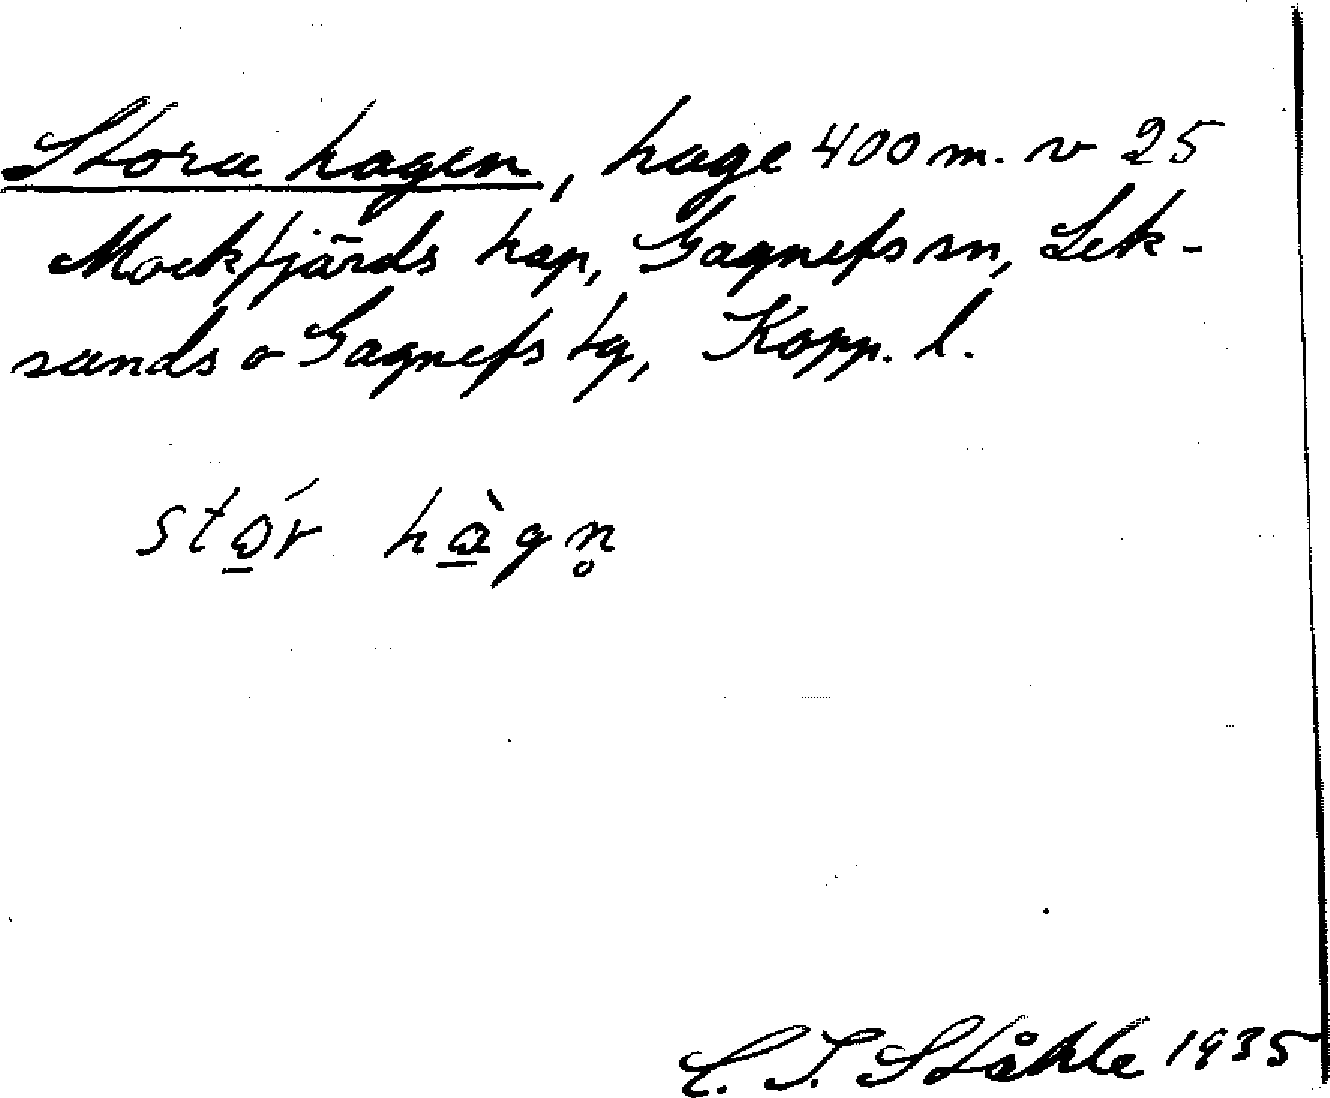 Stora hagen, hage 400 m. v 25
Mockfjärds kap, Gagnefs sn, Lek-
sands o Gagnefs tg, Kopp. l.
stǫ́r hàgn̥
C. I. Ståhle 1935